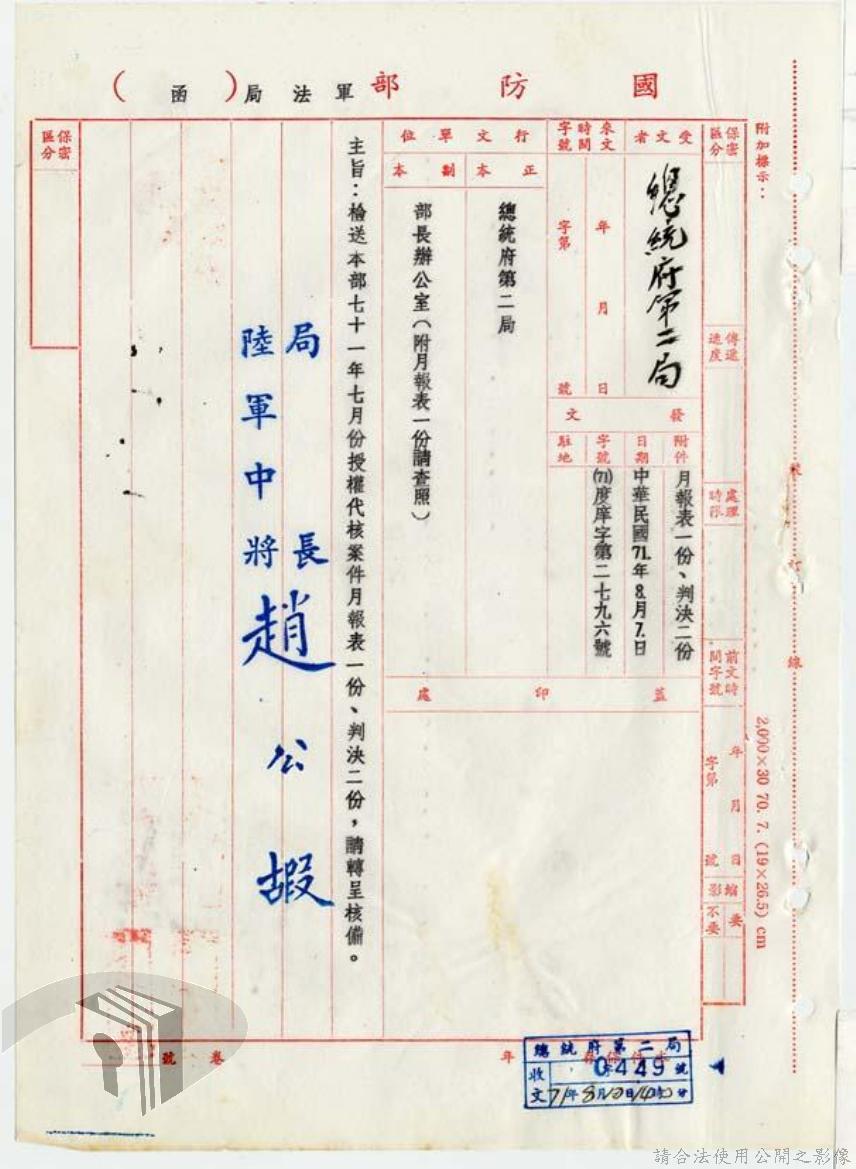 國防部軍法局(函)
附加標示：
保密區分
傳遞速度
處理時限
前文時間字號
年 月 日
字第 號
縮影
要
不要
裝訂線
2,000×30 70. 7. (19×26.5) cm
受文者
總統府第二局
來文時間字號
年 月 日
字第 號
發文
附件
月報表一份、判決二份
日期
中華民國71.年8月7.日
字號
(71)度庠字第二七九六號
駐地
行文單位
正本
總統府第二局
副本
部長辦公室（附月報表一份請查照）
蓋印處
主旨：檢送本部七十一年七月份授權代核案件月報表一份、判決二份，請轉呈核備。
局長
陸軍中將趙公嘏
保密區分
年
卷
號
總統府第二局
收文
449號
71年8月
日
時
分
請合法使用公開之影像